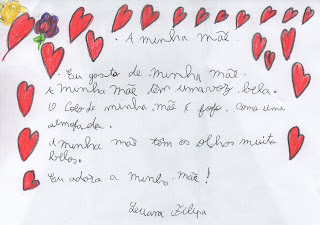 A minha mãe.
Eu gosto de minha mãe.
A minha mãe tem uma voz bela.
O colo de minha mãe é fofo, como uma
almofada.
A minha mãe tem os olhos muito
belos.
Eu adoro a minha mãe!
Filipa